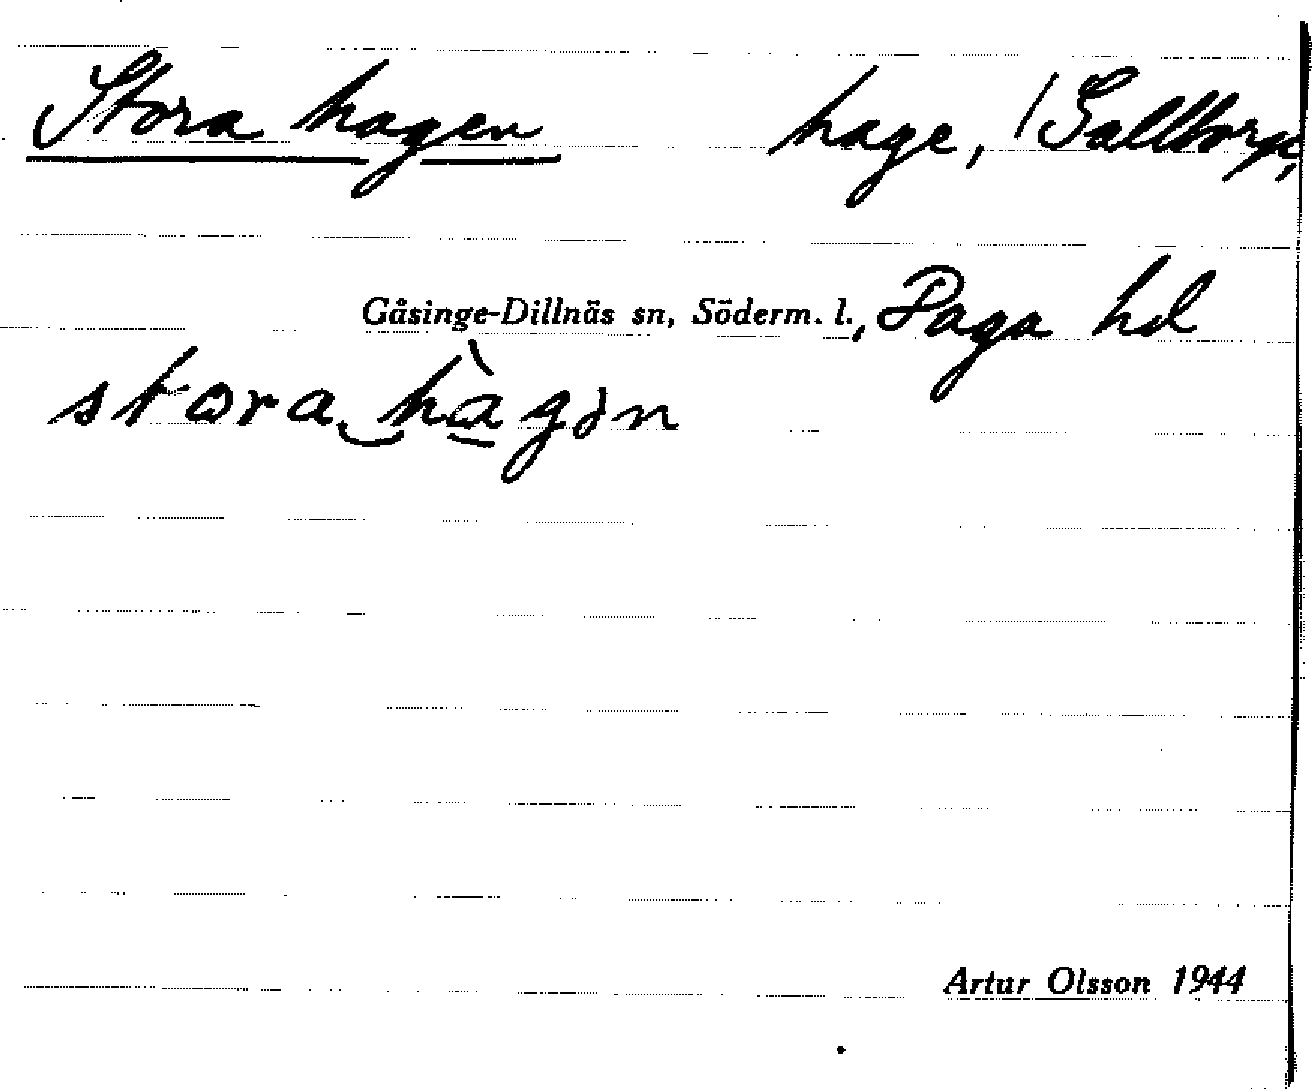 Stora hagen hage, /Sallborp,
Gåsinge-Dillnäs sn, Söderm. l., Daga hd
stora hàgən
Artur Olsson 1944